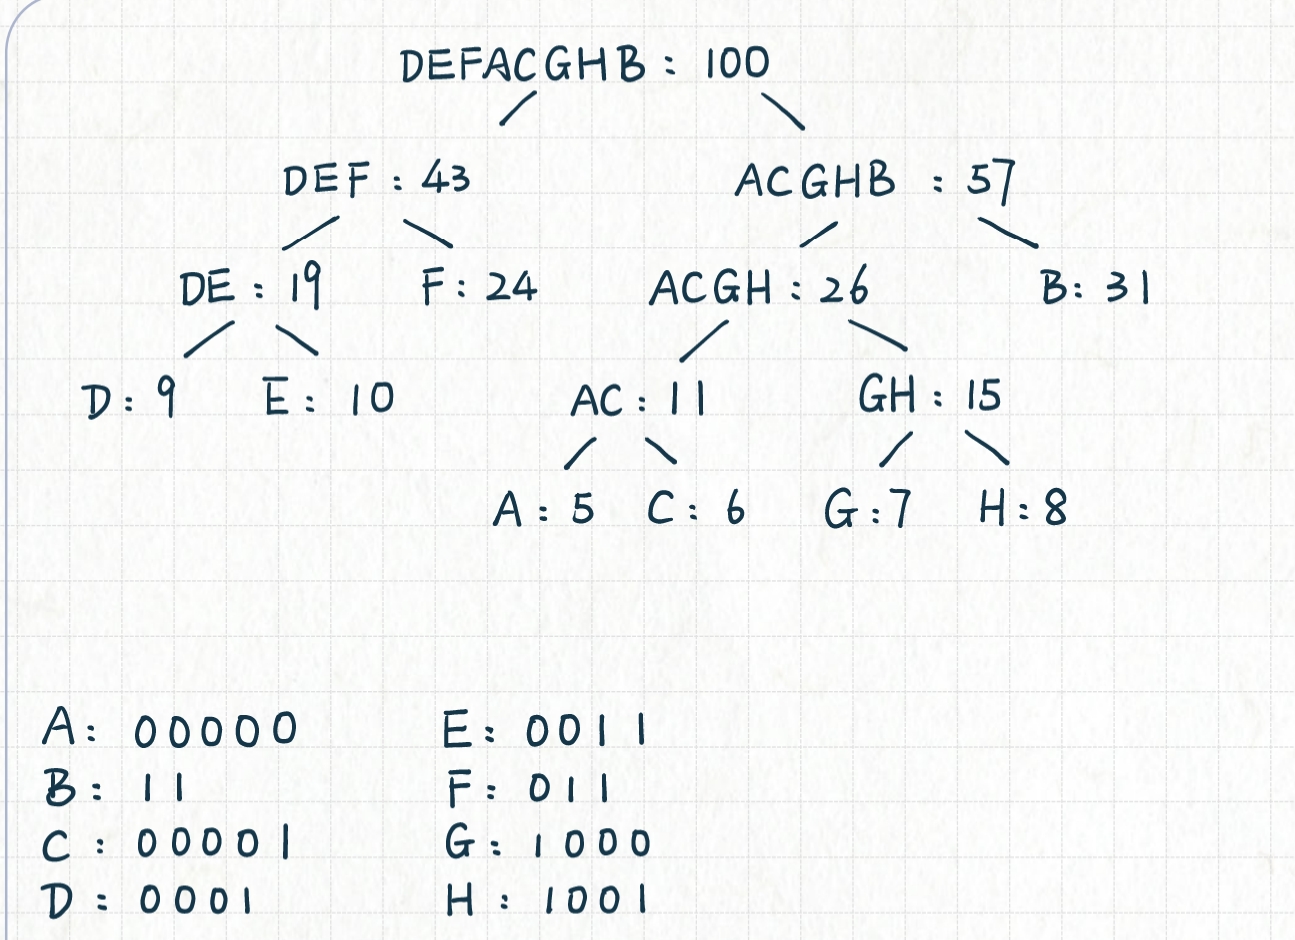 DEFACGHB : 100
DEF : 43 ACGHB : 57
DE : 19 F : 24 ACGH : 26 B : 31
D : 9 E : 10 AC : 11 GH : 15
A : 5 C : 6 G : 7 H : 8
A : 00000 E : 0011
B : 11 F : 011
C : 00001 G : 1000
D : 0001 H : 1001